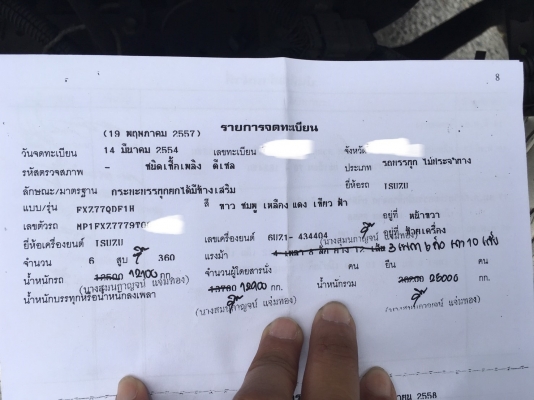 8
รายการจดทะเบียน
(19 พฤษภาคม 2557)
วันจดทะเบียน 14 มีนาคม 2554 เลขทะเบียน จังหวัด
รหัสตรวจสภาพ - ชนิดเชื้อเพลิง ดีเซล ประเภท รถบรรทุก ไม่ประจำทาง
ลักษณะ/มาตรฐาน กระบะบรรทุกยกได้มีข้างเสริม ยี่ห้อรถ ISUZU
แบบ/รุ่น FXZ77QDF1H สี ขาว ชมพู เหลือง แดง เขียว ฟ้า
เลขตัวรถ MP1FXZ7779T0 อยู่ที่ หน้าขวา
ยี่ห้อเครื่องยนต์ ISUZU เลขเครื่องยนต์ 6UZ1- 434404 อยู่ที่ ข้างเครื่อง
(นางสุมนกาญจน์ แจ่มทอง)
จำนวน 6 สูบ 360 แรงม้า 3 เพลา 6 ล้อ ยาง 10 เส้น
น้ำหนักรถ 12500 12100 กก. จำนวนผู้โดยสารนั่ง คน ยืน คน
(นางสุมนกาญจน์ แจ่มทอง)
น้ำหนักบรรทุกหรือน้ำหนักลงเพลา 12900 กก. น้ำหนักรวม 25000 กก.
(นางสุมนกาญจน์ แจ่มทอง) (นางสุมนกาญจน์ แจ่มทอง)
2558